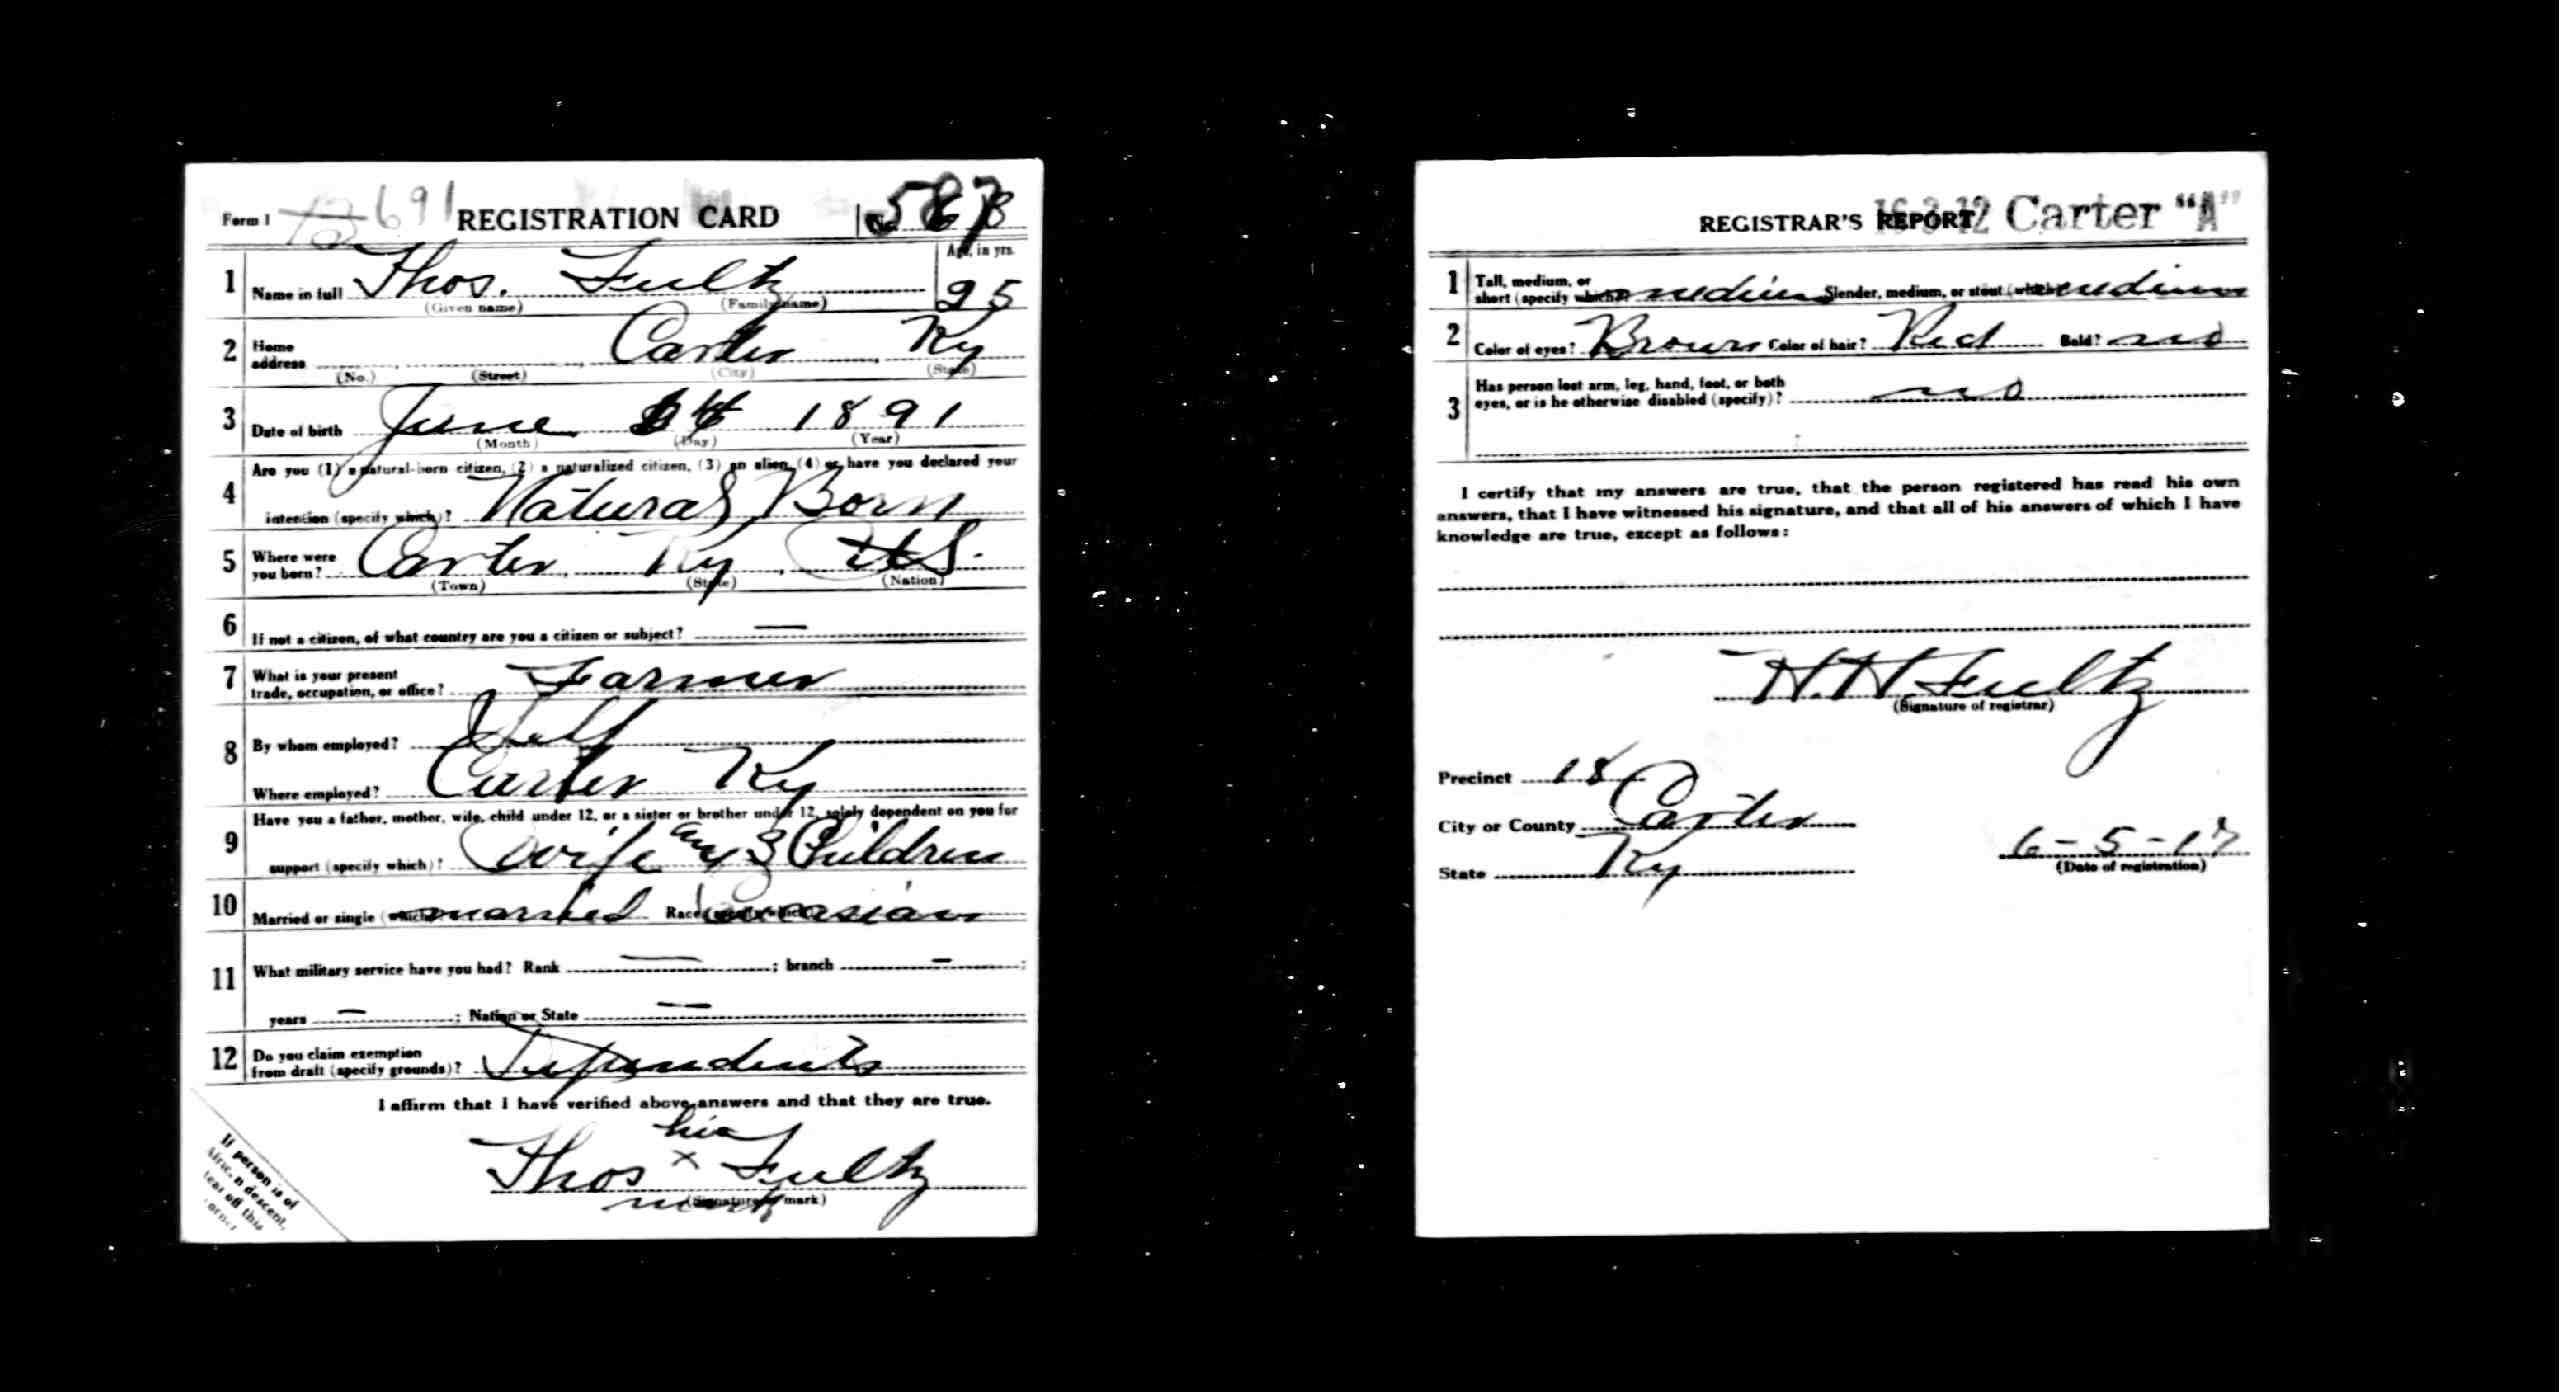 Form 1 691 REGISTRATION CARD No.
Age, in yrs.
1 Name in full Thos. Fultz 25
(Given name) (Family name)
2 Home address Carter Ky
(No.) (Street) (City) (State)
3 Date of birth June 1891
(Month) (Day) (Year)
4 Are you (1) a natural-born citizen, (2) a naturalized citizen, (3) an alien, (4) or have you declared your
intention (specify which)? Natural Born
5 Where were you born? Carter Ky US.
(Town) (State) (Nation)
6 If not a citizen, of what country are you a citizen or subject? —
7 What is your present trade, occupation, or office? Farmer
8 By whom employed? Self
Where employed? Carter Ky
9 Have you a father, mother, wife, child under 12, or a sister or brother under 12, solely dependent on you for
support (specify which)? Wife and 3 Children
10 Married or single (which)? married Race (specify which)? Caucasian
11 What military service have you had? Rank — ; branch — ;
years — ; Nation or State —
12 Do you claim exemption from draft (specify grounds)? Dependents
I affirm that I have verified above answers and that they are true.
his
Thos x Fultz
mark
(Signature or mark)
If person is of
African descent,
tear off this
corner
REGISTRAR'S REPORT 16-3-12 Carter "A"
1 Tall, medium, or short (specify which)? medium Slender, medium, or stout (which)? medium
2 Color of eyes? Brown Color of hair? Red Bald? no
3 Has person lost arm, leg, hand, foot, or both
eyes, or is he otherwise disabled (specify)? no
I certify that my answers are true, that the person registered has read his own
answers, that I have witnessed his signature, and that all of his answers of which I have
knowledge are true, except as follows:
H. H. Fultz
(Signature of registrar)
Precinct 18
City or County Carter
State Ky 6-5-17
(Date of registration)